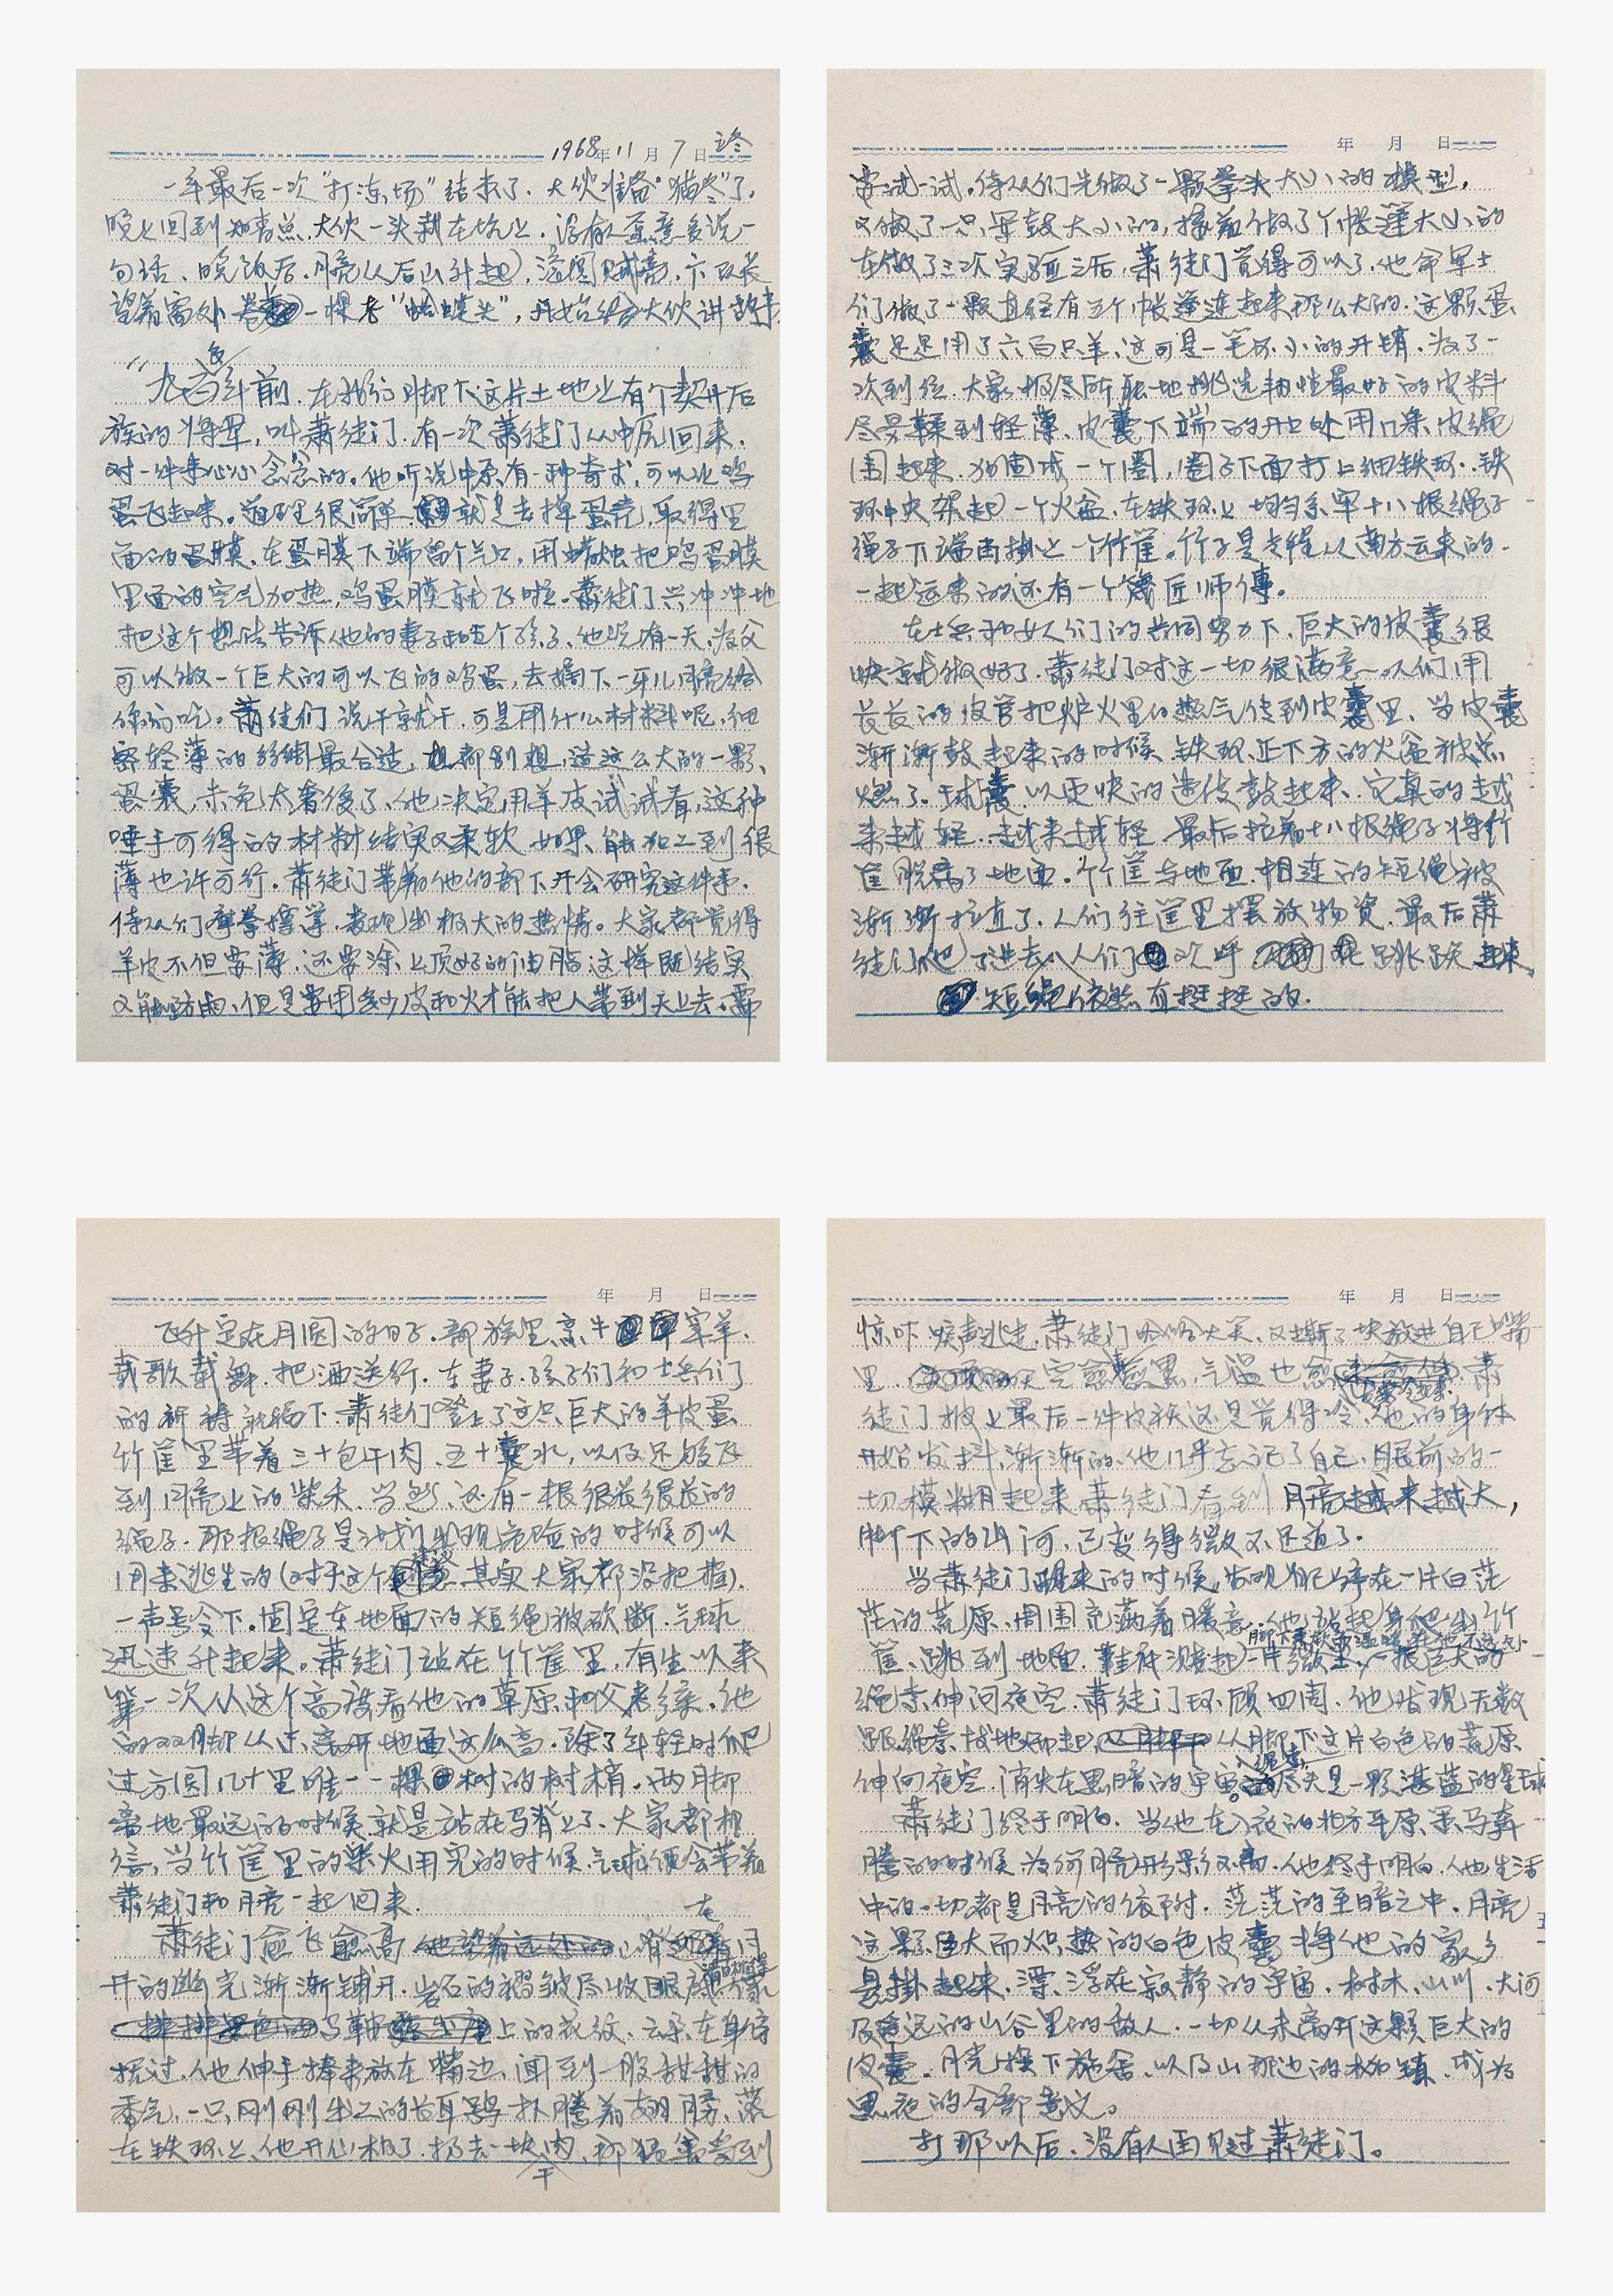 1968年11月7日
一年最后一次“打冻场”结束了.大伙准备“猫冬”了.
晚上回到知青点,大伙一头栽在炕上.没有人愿意多说一
句话、晚饭后.月亮从后山升起,滚圆贼亮.亓队长
望着窗外卷一棵老“蛤蟆头”,开始给大伙讲故事
九百多年前.在我们脚下这片土地上有个契丹后
族的将军,叫萧徒门.有一次萧徒门从中原回来.
对一件事心心念念的.他听说中原有一种奇术,可以让鸡
蛋飞起来。道理很简单.就是去掉蛋壳,取得里
面的蛋膜.在蛋膜下端留个气口,用蜡烛把鸡蛋膜
里面的空气加热,鸡蛋膜就飞啦。萧徒门兴冲冲地
把这个想法告诉他的妻子和五个孩子、他说有一天.为父
可以做一个巨大的可以飞的鸡蛋,去摘下一牙儿月亮给
你们吃。萧徒们说干就干.可是用什么材料呢,细
密轻薄的丝绸最合适,想都别想,造这么大的一颗
蛋囊,未免太奢侈了、他决定用羊皮试试看,这种
唾手可得的材料结实又柔软.如果能加工到很
薄也许可行.萧徒门带着他的部下开会研究这件事.
侍从们摩拳擦掌.表现出极大的热情。大家都觉得
羊皮不但要薄.还要涂上顶好的油脂这样既结实
又能防雨、但是要用多少皮和火才能把人带到天上去.需
要试一试.侍从们先做了一颗拳头大小的模型,
又做了一只军鼓大小的,接着做了个帐篷大小的
在做了三次实验之后.萧徒门觉得可以了.他命军士
们做了一颗直径有五个帐篷连起来那么大的.这颗蛋
囊足足用了六百只羊、这可是一笔不小的开销.为了一
次到位.大家极尽所能地挑选韧性最好的皮料
尽量鞣到轻薄、皮囊下端的开口处用几条皮绳
围起来.加固成一个圈,圈子下面打上细铁环..铁
环中央架起一个火盆.在铁环上均匀系牢十八根绳子
绳子下端再挂上一个竹筐.竹子是专程从南方运来的.
一起运来的还有一个篾匠师傅。
在士兵和女人们的共同努力下.巨大的皮囊很
快就做好了.萧徒门对这一切很满意~.人们用
长长的皮管把炉火里的热气传到皮囊里、当皮囊
渐渐鼓起来的时候.铁环正下方的火盆被点
燃了.球囊以更快的速度鼓起来、它真的越
来越轻.越来越轻.最后拉着十八根绳子将竹
筐脱离了地面.竹筐与地面相连的短绳被
渐渐拉直了.人们往筐里摆放物资.最后萧
徒门爬了进去.人们欢呼跳跃起来.
短绳依然直挺挺的.
飞升定在月圆的日子.部族里烹牛宰羊.
载歌载舞.把酒送行.在妻子.孩子们和士兵们
的祈祷祝福下.萧徒们登上了这只巨大的羊皮蛋
竹筐里带着三十包干肉、五十囊水,以及足够飞
到月亮上的柴禾.当然、还有一根很长很长的
绳子.那根绳子是计划出现危险的时候可以
用来逃生的(对于这个,其实大家都没把握).
一声号令下.固定在地面的短绳被砍断.气球
迅速升起来.萧徒门站在竹筐里.有生以来
第一次从这个高度看他的草原和父老乡亲.他
的双脚从未离开地面这么高.除了年轻时爬
过方圆几十里唯一一棵树的树梢.两脚
离地最远的时候就是站在马背上了.大家都相
信,当竹筐里的柴火用完的时候.气球便会带着
萧徒门和月亮一起回来.
萧徒门愈飞愈高
升的幽光渐渐铺开.岩石的褶皱尽收眼底
上的花纹.云朵在身旁
掠过.他伸手捧来放在嘴边、闻到一股甜甜的
香气.一只刚刚出工的长耳鸮扑腾着翅膀、落
在铁环上、他开心极了.扔去一块干肉、那猫头鹰受到
惊吓.唳声逃走,萧徒门哈哈大笑.又撕了块放进自己嘴
里.天空愈愈黑,气温也愈.萧
徒门披上最后一件皮袄还是觉得冷、他的身体
开始发抖.渐渐的.他几乎忘记了自己.眼前的一
切模糊起来.萧徒门看到月亮越来越大,
脚下的山河、已变得微不足道了.
当萧徒门醒来的时候,发现自己停在一片白茫
茫的荒原.周围充满着暖意.他站起身爬出竹
筐、跳到地面.一根巨大的
绳索伸向夜空.萧徒门环顾四周.他发现无数
跟绳索拔地而起.从脚下这片白色的荒原
伸向夜空.消失在黑暗的宇宙。绳索尽头是一颗湛蓝的星球
萧徒门终于明白.当他在入夜的北方平原策马奔
腾的时候.为何月亮形影不离.他终于明白.他生活
中的一切都是月亮的依附.茫茫的至暗之中.月亮
这颗巨大而炽热的白色皮囊将他的家乡
悬挂起来.漂浮在寂静的宇宙.树木.山川.大河
及遥远的山谷里的敌人.一切从未离开这颗巨大的
皮囊.月光投下施舍.以及山那边的柳镇.成为
黑夜的全部意义。
打那以后、没有人再见过萧徒门。